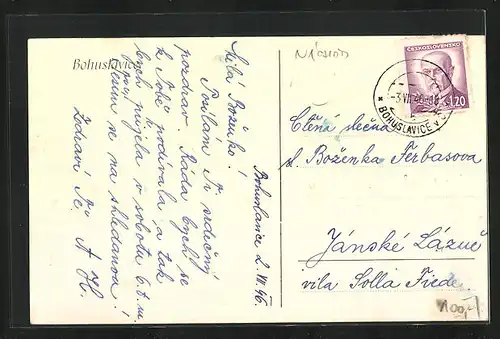 Bohuslavice
NÁCHOD
ČESKOSLOVENSKO
1.20
-3.VII.46
BOHUSLAVICE
Bohuslavice 2.VII.46.
Milá Boženko!
Posílám Ti srdečný
pozdrav. Ráda bych se
k Tobě podívala a tak
bych přijela v sobotu 6.t.m.
Těším se na shledanou!
Zdraví Tě
Ctěná slečna
sl. Boženka Ferbasova
Jánské Lázně
vila Solla Fiede
100,-